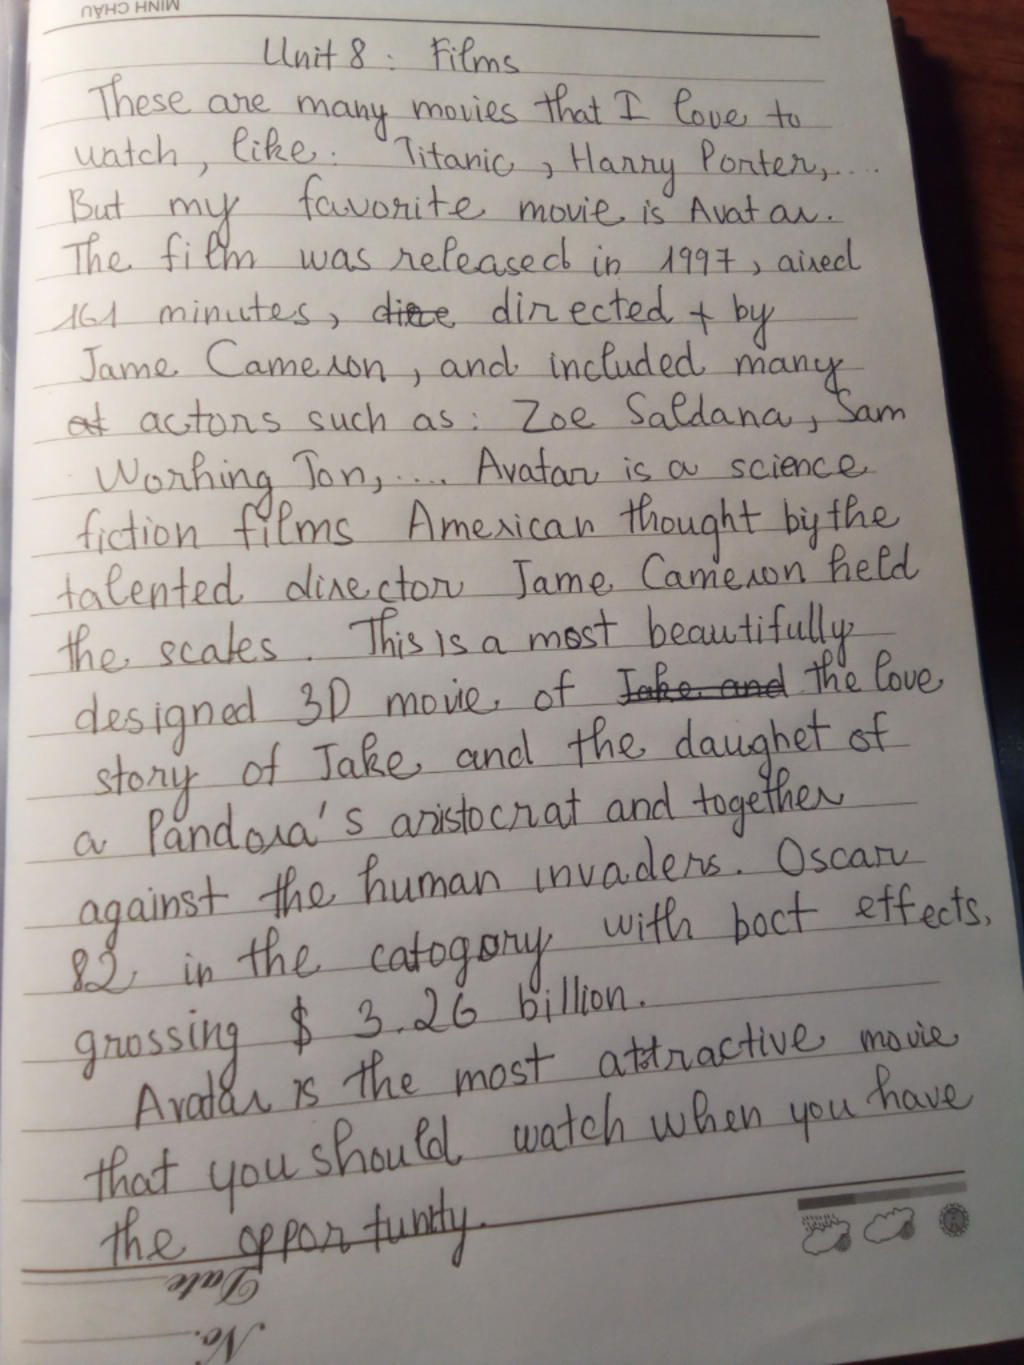 MINH CHÂU
Unit 8 : Films
These are many movies that I love to
watch, like: Titanic, Harry Porter,....
But my favorite movie is Avatar.
The film was released in 1997, aired
161 minutes, dire directed + by
Jame Cameron, and included many
at actors such as: Zoe Saldana, Sam
Worhing Ton,.... Avatar is a science
fiction films American thought by the
talented director Jame Cameron held
the scales. This is a most beautifully
designed 3D movie of Jake and the love
story of Jake and the daughet of
a Pandora's aristocrat and together
against the human invaders. Oscar
82 in the catogory with boct effects,
grossing $ 3.26 billion.
Avatar is the most attractive movie
that you should watch when you have
the opportunity.
Date
No.